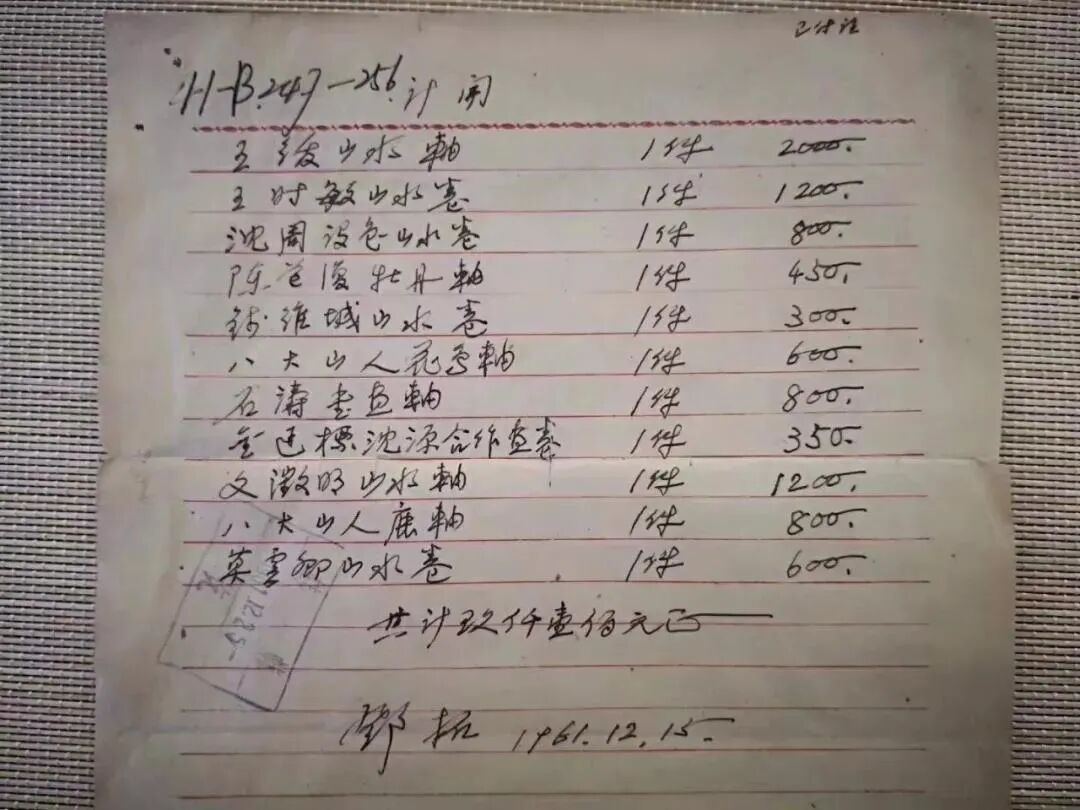 已付
H-B.247-256. 计开
王绂山水軸 1件 2000.
王时敏山水卷 1件 1200.
沈周设色山水卷 1件 800.
陈道復牡丹軸 1件 450.
钱维城山水卷 1件 300.
八大山人花鸟軸 1件 600.
石涛画軸 1件 800.
金廷標沈源合作画卷 1件 350.
文徵明山水軸 1件 1200.
八大山人鹿軸 1件 800.
莫雲卿山水卷 1件 600.
共计玖仟壹佰元正
鄧拓 1961.12.15.